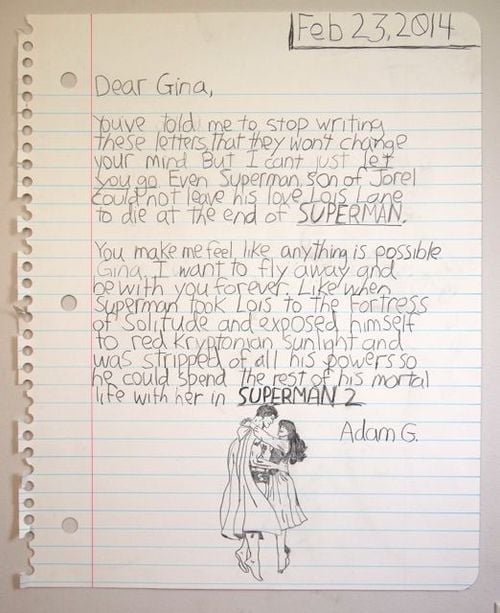 Feb 23, 2014
Dear Gina,
Youve told me to stop writing
these letters, that they wont change
your mind. But I cant just let
you go. Even Superman, son of Jorel
could not leave his love Lois Lane
to die at the end of SUPERMAN.
You make me feel like anything is possible
Gina. I want to fly away and
be with you forever. Like when
Superman took Lois to the Fortress
of Solitude and exposed himself
to red kryptonian sunlight and
was stripped of all his powers so
he could spend the rest of his mortal
life with her in SUPERMAN 2
Adam G.